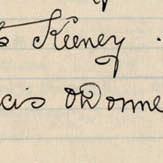 Keeney.
cis O'Donne